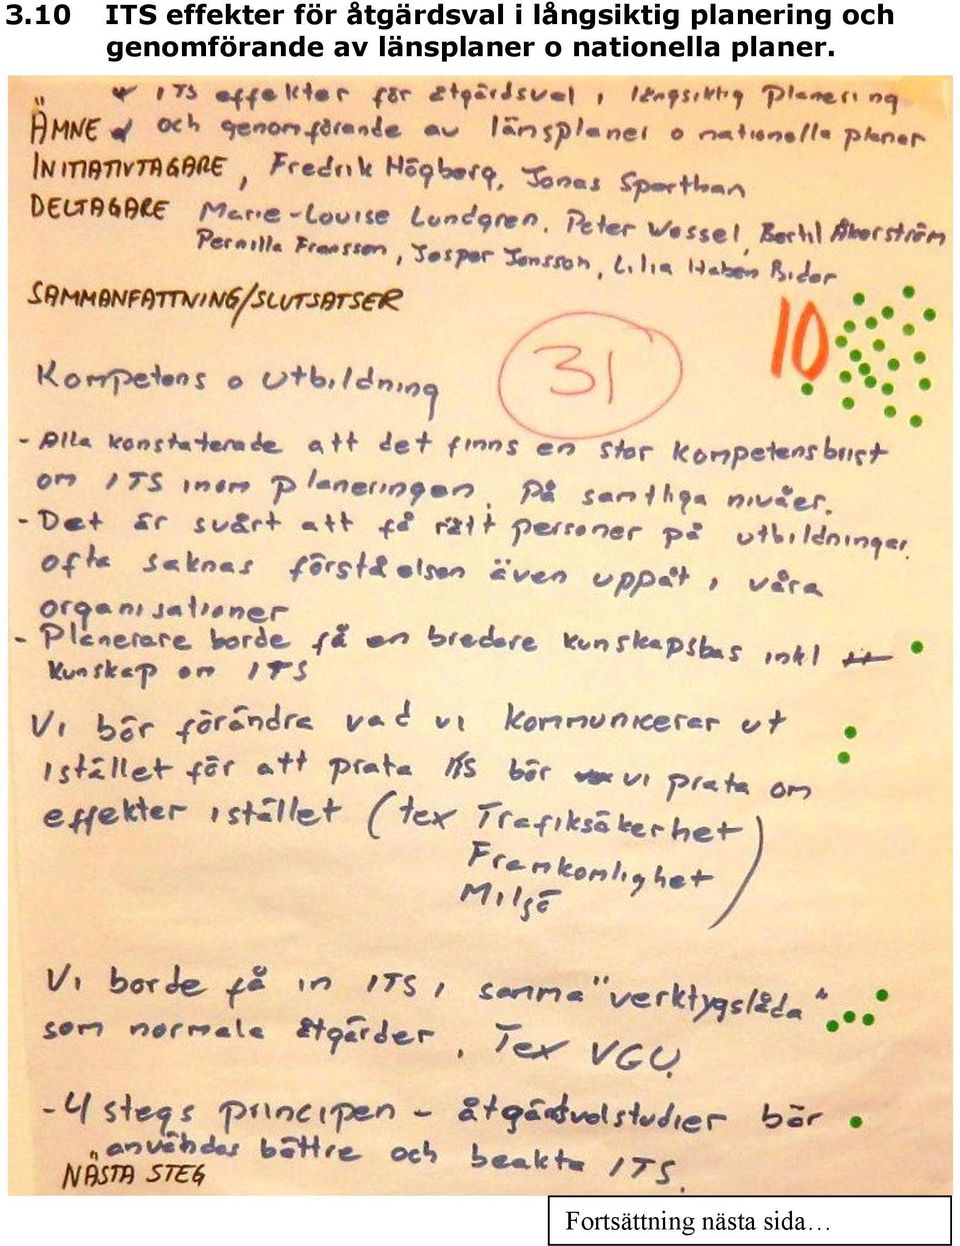 3.10 ITS effekter för åtgärdsval i långsiktig planering och
genomförande av länsplaner o nationella planer.
ITS effekter för åtgärdsval i långsiktig planering
ÄMNE och genomförande av länsplaner o nationella planer
INITIATIVTAGARE, Fredrik Högberg, Jonas Sparthan
DELTAGARE Marie-Louise Lundgren, Peter Wessel, Bertil Åkerström
Pernilla Fransson, Jesper Jonsson, Lilia Bidar
SAMMANFATTNING/SLUTSATSER
10
31
Kompetens o utbildning
- Alla konstaterade att det finns en stor kompetensbrist
om ITS inom planeringen, på samtliga nivåer.
- Det är svårt att få rätt personer på utbildningar,
ofta saknas förståelsen även uppåt i våra
organisationer
- Planerare borde få en bredare kunskapsbas inkl
kunskap om ITS
Vi bör förändra vad vi kommunicerar ut
istället för att prata ITS bör vi prata om
effekter istället (tex Trafiksäkerhet
Framkomlighet
Miljö)
Vi borde få in ITS i samma "verktygslåda"
som normala åtgärder, Tex VGU.
- 4 stegs principen - åtgärdsvalstudier bör
användas bättre och beakta ITS.
NÄSTA STEG
Fortsättning nästa sida…